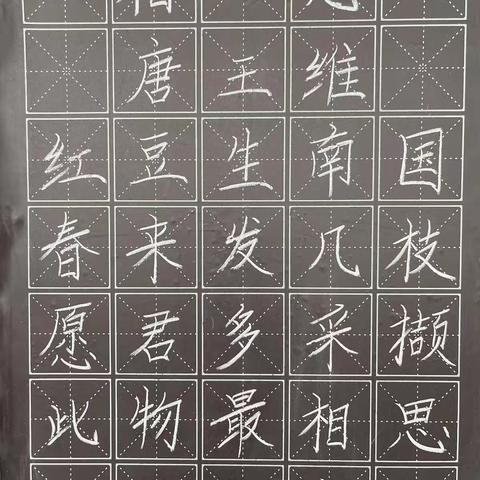 相 思
唐 王 维
红 豆 生 南 国
春 来 发 几 枝
愿 君 多 采 撷
此 物 最 相 思